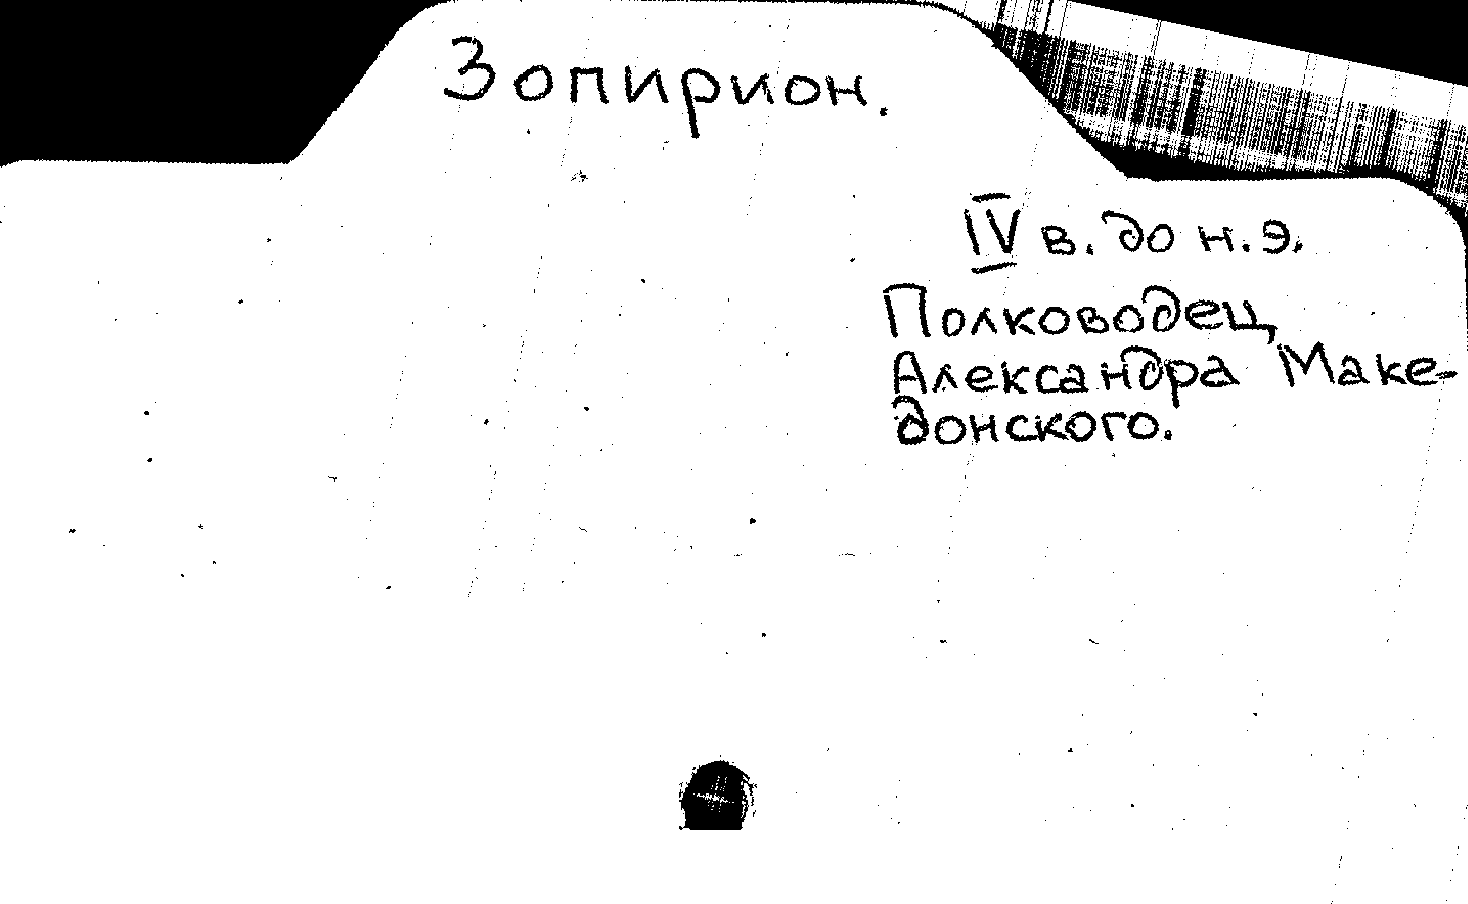 Зопирион.
IV в. до н.э.
Полководец
Александра Маке-
донского.